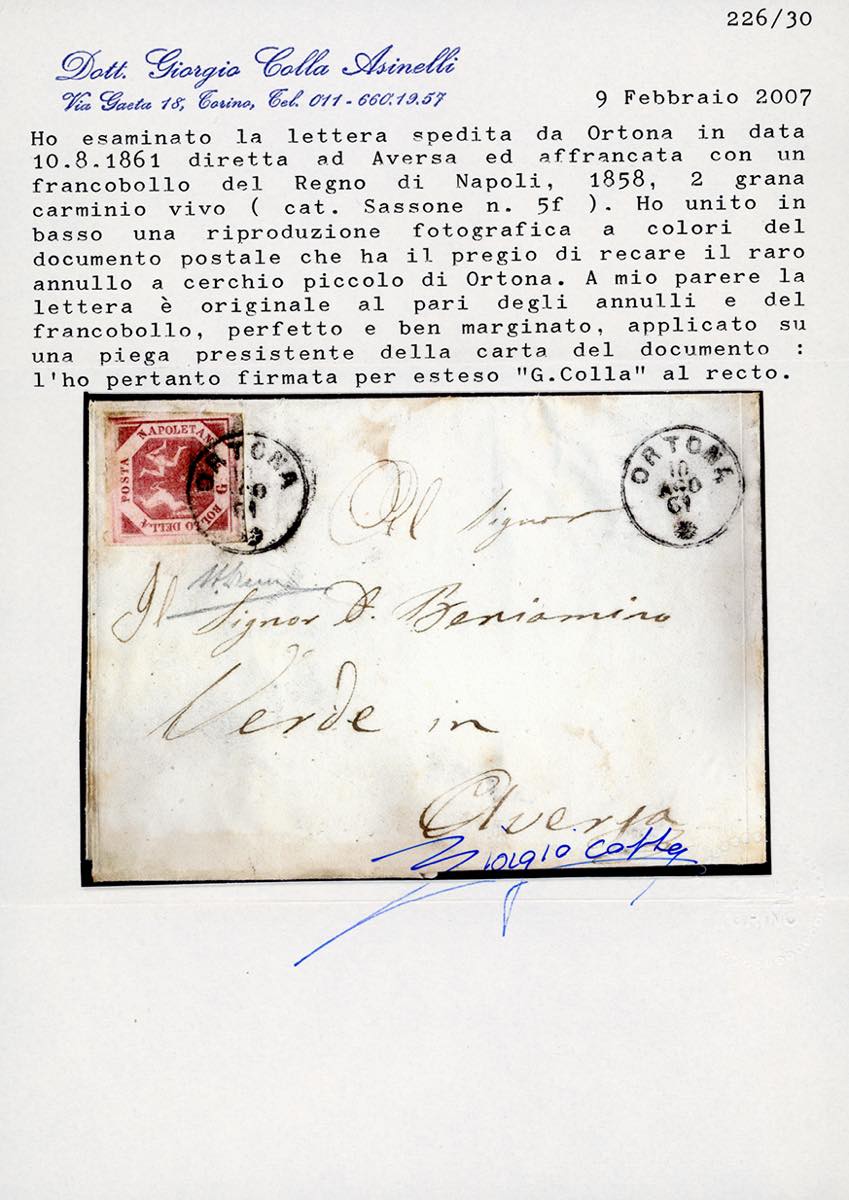 226/30
Dott. Giorgio Colla Asinelli
Via Gaeta 18, Torino, Tel. 011-660.19.57
9 Febbraio 2007
Ho esaminato la lettera spedita da Ortona in data
10.8.1861 diretta ad Aversa ed affrancata con un
francobollo del Regno di Napoli, 1858, 2 grana
carminio vivo ( cat. Sassone n. 5f ). Ho unito in
basso una riproduzione fotografica a colori del
documento postale che ha il pregio di recare il raro
annullo a cerchio piccolo di Ortona. A mio parere la
lettera è originale al pari degli annulli e del
francobollo, perfetto e ben marginato, applicato su
una piega presistente della carta del documento :
l'ho pertanto firmata per esteso "G.Colla" al recto.
POSTA NAPOLETANA
G BOLLO DELLA
ORTONA
ORTONA
10
AGO
61
Al Signor
Il Signor D. Beniamino
Verde in
Aversa
Giorgio Colla